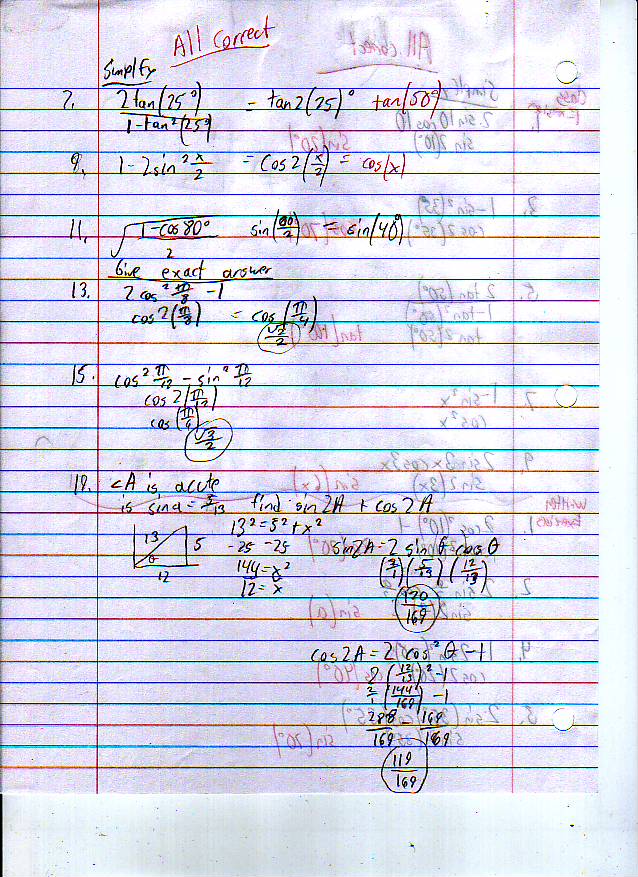 All Correct
Simplify
7. 2tan(25°) / 1-tan²(25°) = tan2(25)° tan(50°)
9. 1-2sin² x/2 = cos2(x/2) = cos(x)
11. √(1-cos80° / 2) sin(80/2) = sin(40°)
Give exact answer
13. 2cos² π/8 -1
cos2(π/8) = cos(π/4)
√2/2
15. cos² π/12 - sin² π/12
cos2(π/12)
cos(π/6)
√3/2
∠A is acute
is sina= 5/13 find sin2A + cos2A
13 5 θ 12
13²=5²+x²
-25 -25
144=x²
12=x
sin2A=2 sinθ cosθ
(2/1)(5/13)(12/13)
120/169
cos2A=2cos²θ-1
2(12/13)²-1
2/1(144/169)-1
288/169 - 169/169
119/169